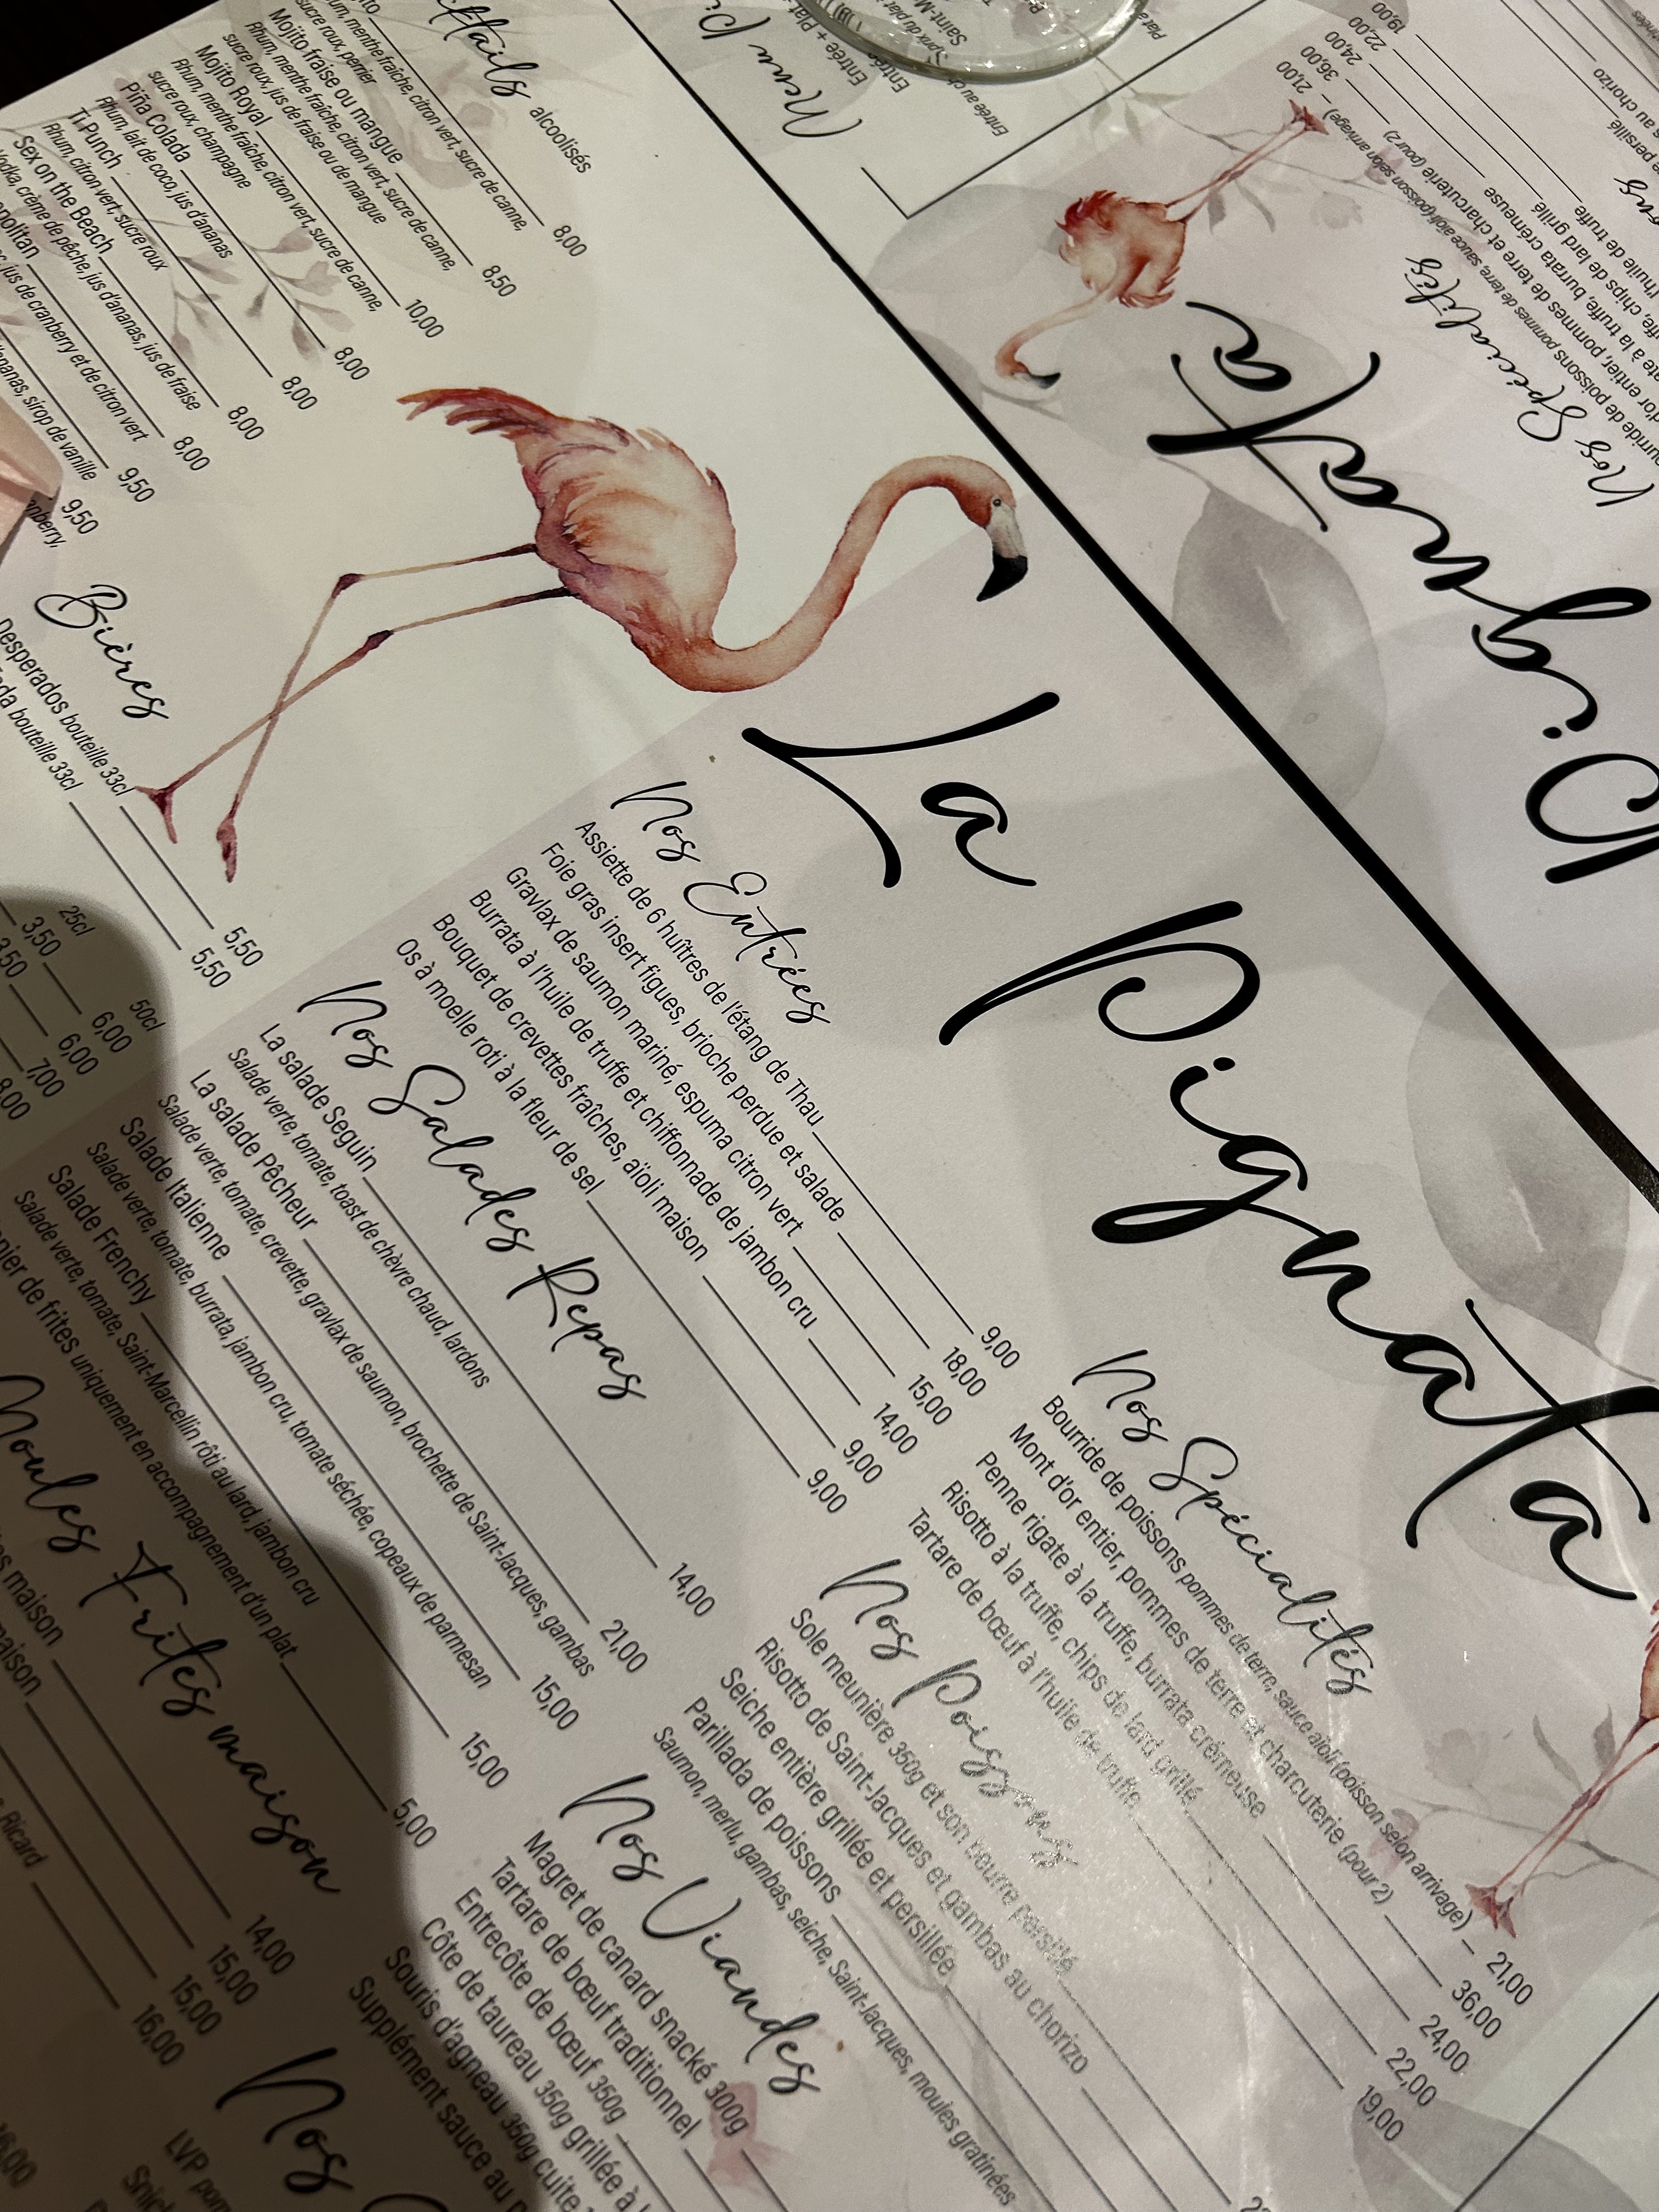 La Pignata
Nos Entrées
Assiette de 6 huîtres de l'étang de Thau 9,00
Foie gras insert figues, brioche perdue et salade 18,00
Gravlax de saumon mariné, espuma citron vert 15,00
Burrata à l'huile de truffe et chiffonnade de jambon cru 14,00
Bouquet de crevettes fraîches, aïoli maison 9,00
Os à moelle roti à la fleur de sel 9,00
Nos Salades Repas
La salade Seguin 14,00
Salade verte, tomate, toast de chèvre chaud, lardons
La salade Pêcheur 21,00
Salade verte, tomate, crevette, gravlax de saumon, brochette de Saint-Jacques, gambas
Salade Italienne 15,00
Salade verte, tomate, burrata, jambon cru, tomate séchée, copeaux de parmesan
Salade Frenchy 15,00
Salade verte, tomate, Saint-Marcellin rôti au lard, jambon cru
de frites uniquement en accompagnement d'un plat 5,00
Moules Frites maison
maison 14,00
maison 15,00
15,00
Ricard 16,00
Nos Spécialités
Bourride de poissons pommes de terre, sauce aïoli (poisson selon arrivage) 21,00
Mont d'or entier, pommes de terre et charcuterie (pour 2) 36,00
Penne rigate à la truffe, burrata crémeuse 24,00
Risotto à la truffe, chips de lard grillé 22,00
Tartare de bœuf à l'huile de truffe 19,00
Nos Poissons
Sole meunière 350g et son beurre persillé
Risotto de Saint-Jacques et gambas au chorizo
Seiche entière grillée et persillée
Parillada de poissons
Saumon, merlu, gambas, seiche, Saint-Jacques, moules gratinées
Nos Viandes
Magret de canard snacké 300g
Tartare de bœuf traditionnel
Entrecôte de bœuf 350g
Côte de taureau 350g grillée à
Souris d'agneau 350g cuite
Supplément sauce au
Nos
LVP
alcoolisés
menthe fraîche, citron vert, sucre de canne, 8,00
sucre roux, perrier
Mojito fraise ou mangue 8,50
Rhum, menthe fraîche, citron vert, sucre de canne,
sucre roux, jus de fraise ou de mangue
Mojito Royal 10,00
Rhum, menthe fraîche, citron vert, sucre de canne,
sucre roux, champagne
Piña Colada 8,00
Rhum, lait de coco, jus d'ananas
Ti Punch 8,00
Rhum, citron vert, sucre roux
Sex on the Beach 8,00
Vodka, crème de pêche, jus d'ananas, jus de fraise
8,00
jus de cranberry et de citron vert
9,50
sirop de vanille
9,50
Bières
Desperados bouteille 33cl 5,50
bouteille 33cl 5,50
25cl 50cl
3,50 6,00
3,50 6,00
7,00
8,00
Menu
Entrée + Plat
Pignata
Nos Spécialités
21,00
36,00
24,00
22,00
19,00